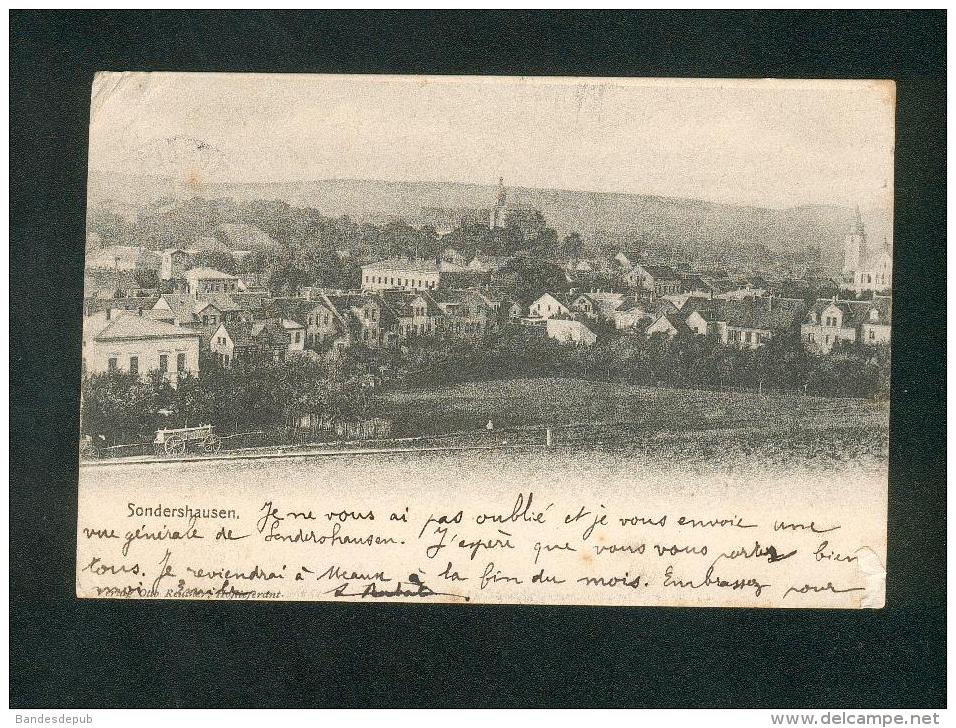 Sondershausen. Je ne vous ai pas oublié et je vous envoie une
vue générale de Sondershausen. J'espère que vous vous portez bien
tous. Je reviendrai à Meaux à la fin du mois. Embrassez pour
moi Emile
Hoflieferant.
Bandesdepub
www.delcampe.net